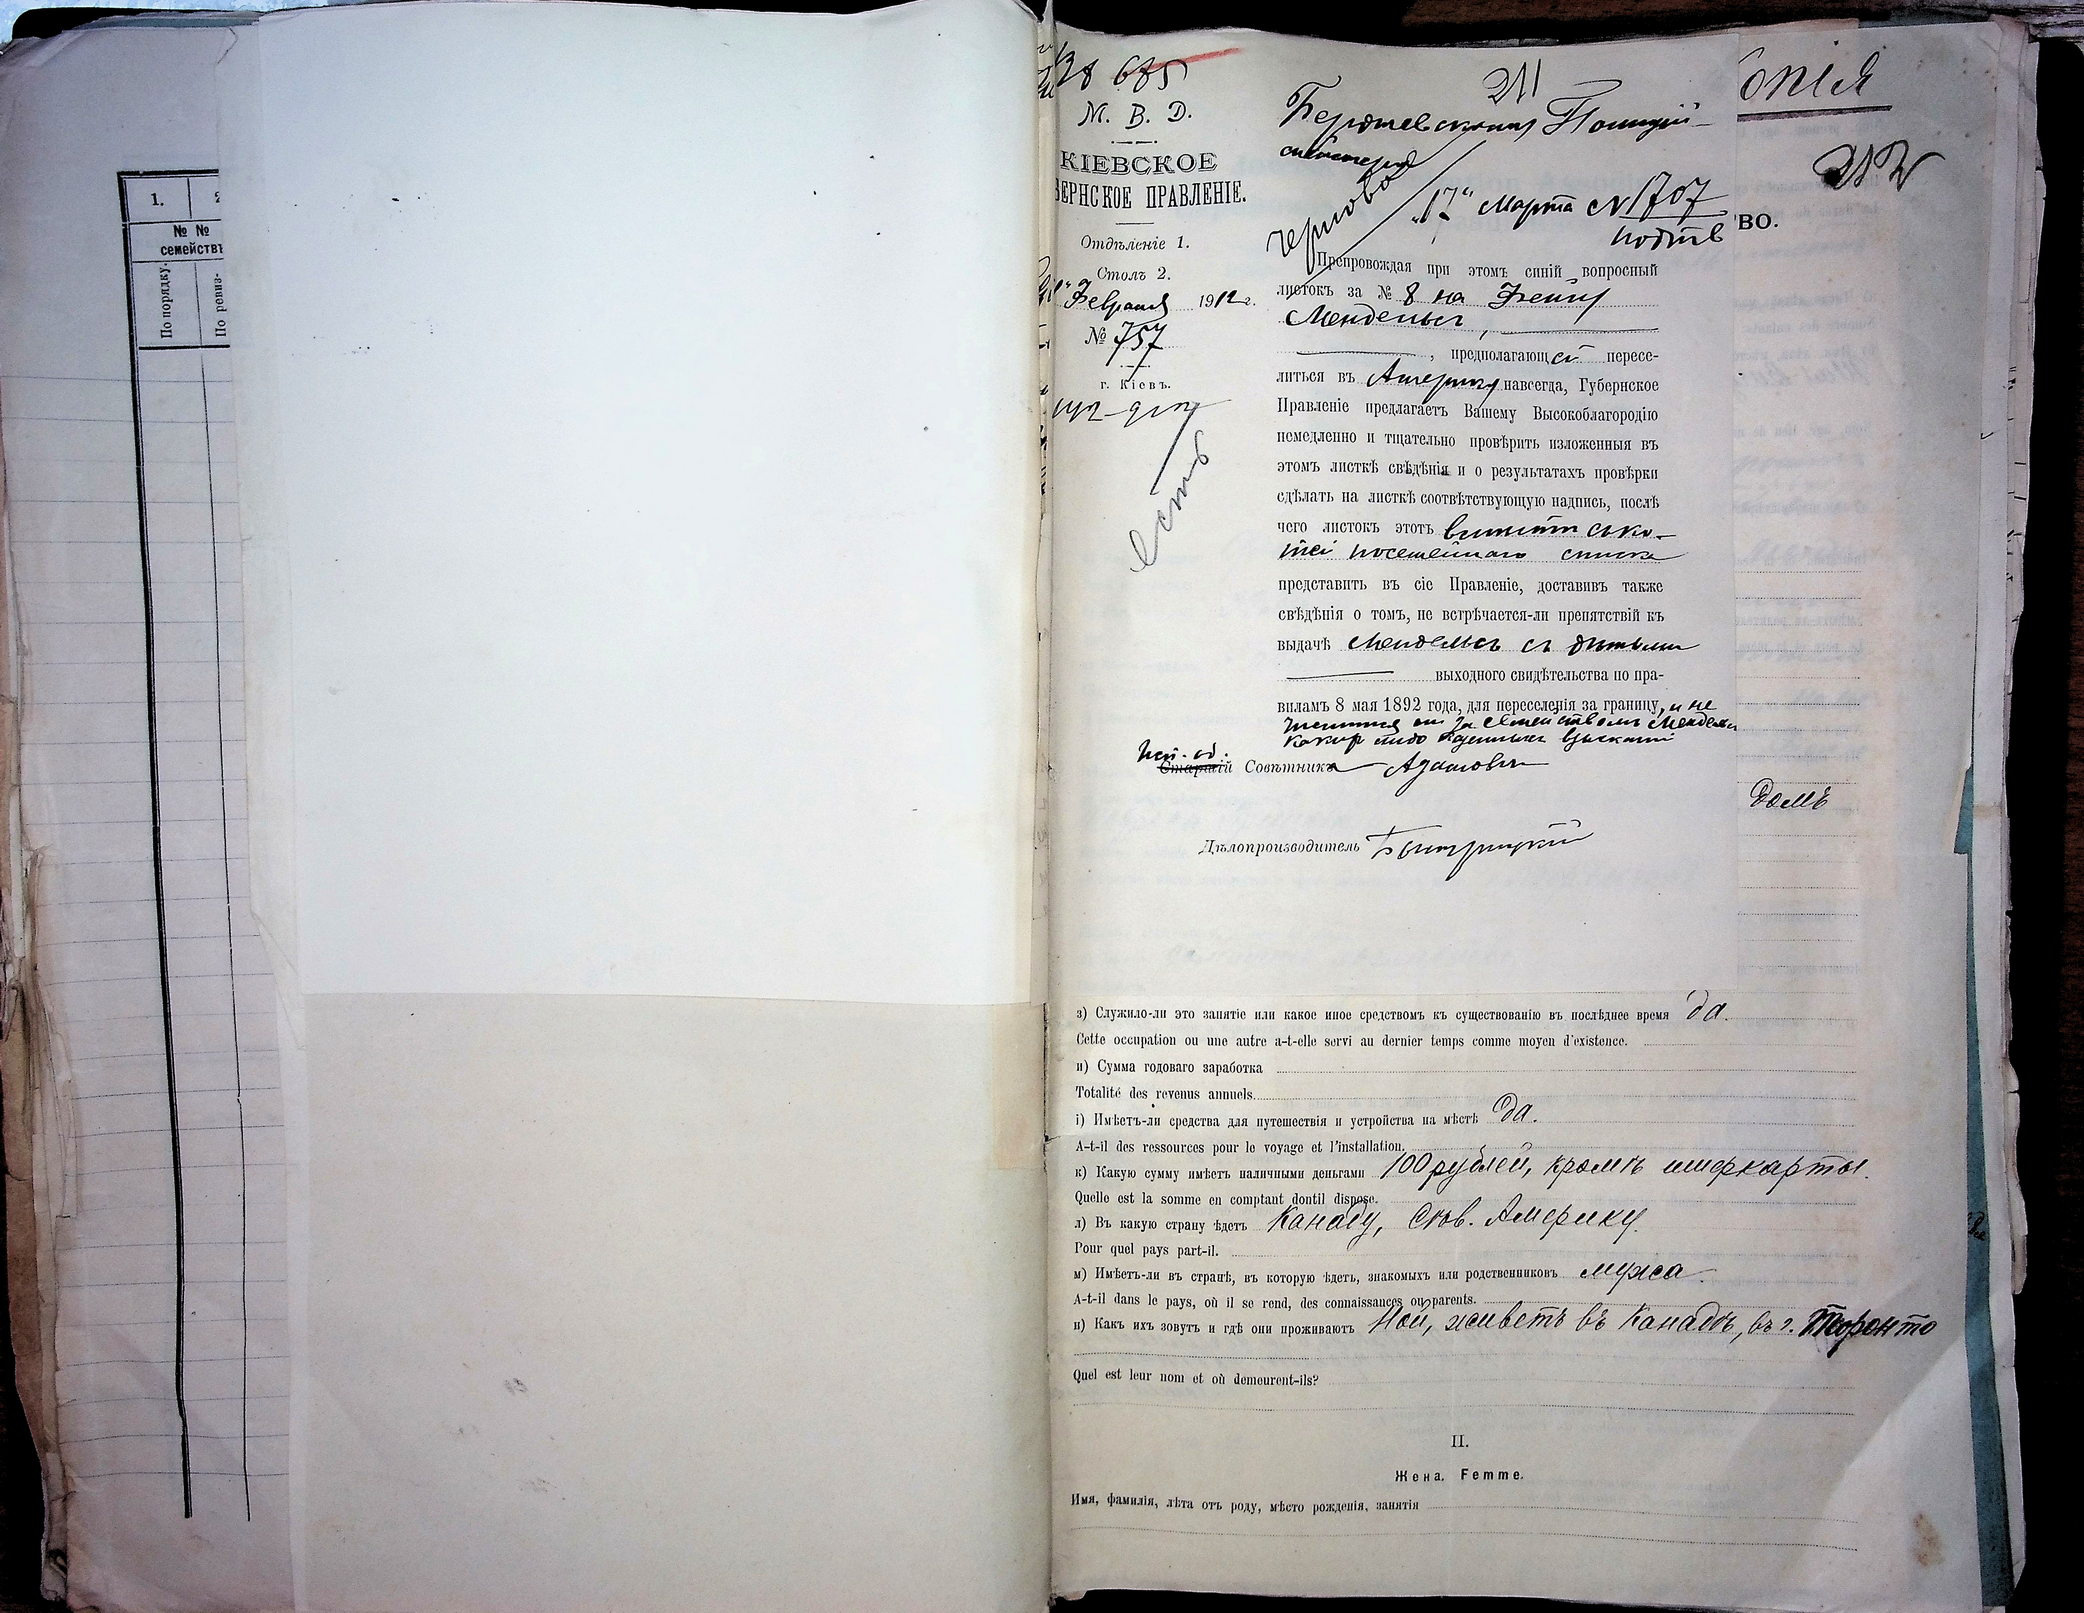 1.
№ №
семействъ
По порядку.
По ревиз-
685
М. В. Д.
КІЕВСКОЕ
ВЕРНСКОЕ ПРАВЛЕНІЕ.
Отдѣленіе 1.
Столъ 2.
Февраля 1912 г.
№ 757
г. Кіевъ.
есть
211
Бердичевскому Полицій-
мейстеру
„17“ Марта № 1707
Препровождая при этомъ синій вопросный
листокъ за № 8 на Фейгу
Мендельсъ,
, предполагающей пересе-
литься въ Америку навсегда, Губернское
Правленіе предлагаетъ Вашему Высокоблагородію
немедленно и тщательно провѣрить изложенныя въ
этомъ листкѣ свѣдѣнія и о результатахъ провѣрки
сдѣлать на листкѣ соотвѣтствующую надпись, послѣ
чего листокъ этотъ вмѣстѣ съ ко-
піей посемейнаго списка
представить въ сіе Правленіе, доставивъ также
свѣдѣнія о томъ, не встрѣчается-ли препятствій къ
выдачѣ Мендельсъ съ дѣтьми
выходного свидѣтельства по пра-
виламъ 8 мая 1892 года, для переселенія за границу, и не
числится ли за семействомъ Мендельсъ
какихъ либо казенныхъ взысканій
Исп. об.
Старшій Совѣтника
Дѣлопроизводитель
опія
212
ВО.
домъ
з) Служило-ли это занятіе или какое иное средствомъ къ существованію въ послѣднее время да.
Cette occupation ou une autre a-t-elle servi au dernier temps comme moyen d'existence.
и) Сумма годоваго заработка
Totalité des revenus annuels.
і) Имѣетъ-ли средства для путешествія и устройства на мѣстѣ да.
A-t-il des ressources pour le voyage et l'installation.
к) Какую сумму имѣетъ наличными деньгами 100 рублей, кромѣ шифкарты.
Quelle est la somme en comptant dontil dispose.
л) Въ какую страну ѣдетъ Канаду, Сѣв. Америку.
Pour quel pays part-il.
м) Имѣетъ-ли въ странѣ, въ которую ѣдетъ, знакомыхъ или родственниковъ мужа.
A-t-il dans le pays, où il se rend, des connaissances ou parents.
н) Какъ ихъ зовутъ и гдѣ они проживаютъ Ной, живетъ въ Канадѣ, въ г. Торонто
Quel est leur nom et où demeurent-ils?
II.
Жена. Femme.
Имя, фамилія, лѣта отъ роду, мѣсто рожденія, занятія